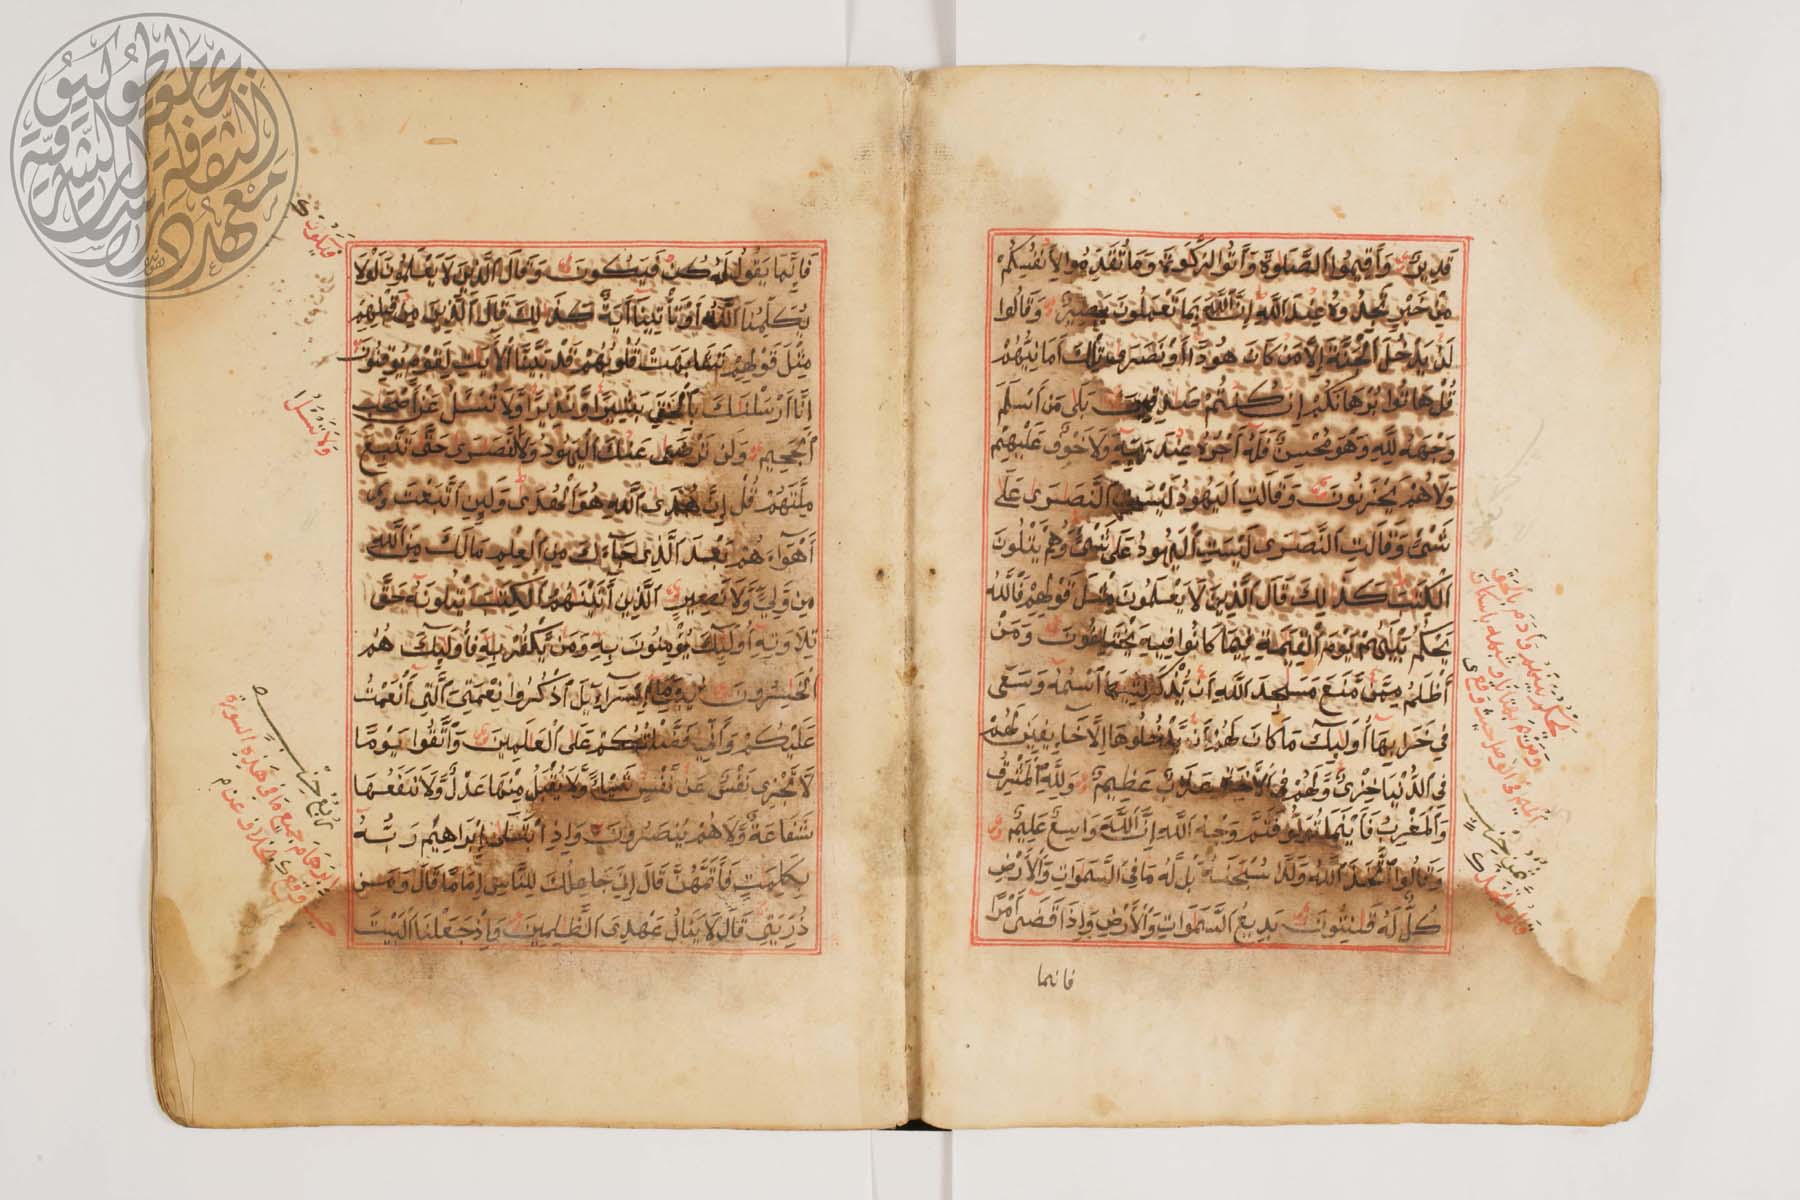 قَدِيرٌ وَأَقِيمُوا الصَّلَوةَ وَآتُوا الزَّكَوةَ وَمَا تُقَدِّمُوا لِأَنْفُسِكُمْ
مِنْ خَيْرٍ تَجِدُوهُ عِنْدَ اللَّهِ إِنَّ اللَّهَ بِمَا تَعْمَلُونَ بَصِيرٌ وَقَالُوا
لَنْ يَدْخُلَ الْجَنَّةَ إِلَّا مَنْ كَانَ هُودًا أَوْ نَصَرَى تِلْكَ أَمَانِيُّهُمْ
قُلْ هَاتُوا بُرْهَانَكُمْ إِنْ كُنْتُمْ صَدِقِينَ بَلَى مَنْ أَسْلَمَ
وَجْهَهُ لِلَّهِ وَهُوَ مُحْسِنٌ فَلَهُ أَجْرُهُ عِنْدَ رَبِّهِ وَلَا خَوْفٌ عَلَيْهِمْ
وَلَا هُمْ يَحْزَنُونَ وَقَالَتِ الْيَهُودُ لَيْسَتِ النَّصَرَى عَلَى
شَيْءٍ وَقَالَتِ النَّصَرَى لَيْسَتِ الْيَهُودُ عَلَى شَيْءٍ وَهُمْ يَتْلُونَ
الْكِتَبَ كَذَلِكَ قَالَ الَّذِينَ لَا يَعْلَمُونَ مِثْلَ قَوْلِهِمْ فَاللَّهُ
يَحْكُمُ بَيْنَهُمْ يَوْمَ الْقِيَمَةِ فِيمَا كَانُوا فِيهِ يَخْتَلِفُونَ وَمَنْ
أَظْلَمُ مِمَّنْ مَنَعَ مَسَجِدَ اللَّهِ أَنْ يُذْكَرَ فِيهَا اسْمُهُ وَسَعَى
فِي خَرَابِهَا أُولَئِكَ مَا كَانَ لَهُمْ أَنْ يَدْخُلُوهَا إِلَّا خَائِفِينَ لَهُمْ
فِي الدُّنْيَا خِزْيٌ وَلَهُمْ فِي الْآخِرَةِ عَذَابٌ عَظِيمٌ وَلِلَّهِ الْمَشْرِقُ
وَالْمَغْرِبُ فَأَيْنَمَا تُوَلُّوا فَثَمَّ وَجْهُ اللَّهِ إِنَّ اللَّهَ وَاسِعٌ عَلِيمٌ
وَقَالُوا اتَّخَذَ اللَّهُ وَلَدًا سُبْحَنَهُ بَلْ لَهُ مَا فِي السَّمَوَاتِ وَالْأَرْضِ
كُلٌّ لَهُ قَنِتُونَ بَدِيعُ السَّمَوَاتِ وَالْأَرْضِ وَإِذَا قَضَى أَمْرًا
فانما
فَإِنَّمَا يَقُولُ لَهُ كُنْ فَيَكُونُ وَقَالَ الَّذِينَ لَا يَعْلَمُونَ لَوْلَا
يُكَلِّمُنَا اللَّهُ أَوْ تَأْتِينَا آيَةٌ كَذَلِكَ قَالَ الَّذِينَ مِنْ قَبْلِهِمْ
مِثْلَ قَوْلِهِمْ تَشَبَهَتْ قُلُوبُهُمْ قَدْ بَيَّنَّا الْآيَتِ لِقَوْمٍ يُوقِنُونَ
إِنَّا أَرْسَلْنَكَ بِالْحَقِّ بَشِيرًا وَنَذِيرًا وَلَا تُسْئَلُ عَنْ أَصْحَبِ
الْجَحِيمِ وَلَنْ تَرْضَى عَنْكَ الْيَهُودُ وَلَا النَّصَرَى حَتَّى تَتَّبِعَ
مِلَّتَهُمْ قُلْ إِنَّ هُدَى اللَّهِ هُوَ الْهُدَى وَلَئِنِ اتَّبَعْتَ
أَهْوَاءَهُمْ بَعْدَ الَّذِي جَاءَكَ مِنَ الْعِلْمِ مَا لَكَ مِنَ اللَّهِ
مِنْ وَلِيٍّ وَلَا نَصِيرٍ الَّذِينَ آتَيْنَهُمُ الْكِتَبَ يَتْلُونَهُ حَقَّ
تِلَاوَتِهِ أُولَئِكَ يُؤْمِنُونَ بِهِ وَمَنْ يَكْفُرْ بِهِ فَأُولَئِكَ هُمُ
الْخَسِرُونَ يَبَنِي إِسْرَائِيلَ اذْكُرُوا نِعْمَتِيَ الَّتِي أَنْعَمْتُ
عَلَيْكُمْ وَأَنِّي فَضَّلْتُكُمْ عَلَى الْعَلَمِينَ وَاتَّقُوا يَوْمًا
لَا تَجْزِي نَفْسٌ عَنْ نَفْسٍ شَيْئًا وَلَا يُقْبَلُ مِنْهَا عَدْلٌ وَلَا تَنْفَعُهَا
شَفَاعَةٌ وَلَا هُمْ يُنْصَرُونَ وَإِذِ ابْتَلَى إِبْرَاهِيمَ رَبُّهُ
بِكَلِمَتٍ فَأَتَمَّهُنَّ قَالَ إِنِّي جَاعِلُكَ لِلنَّاسِ إِمَامًا قَالَ وَمِنْ
ذُرِّيَّتِي قَالَ لَا يَنَالُ عَهْدِي الظَّلِمِينَ وَإِذْ جَعَلْنَا الْبَيْتَ